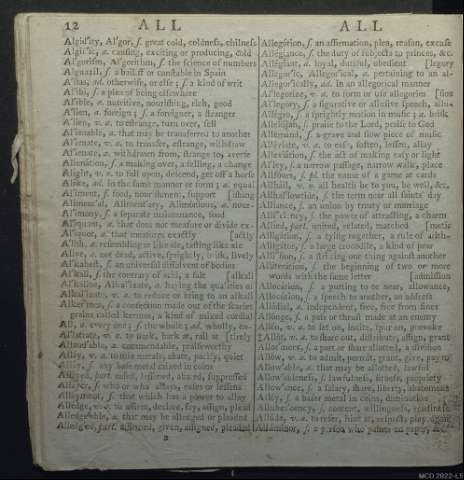 12 ALL ALL
Algid'ity, Al'gor, s. great cold, coldness, chilness
Algif'ic, a. causing, exciting or producing, cold
Al'gorism, Al'gorithm, s. the science of numbers
Alguazil, s. a bailiff or constable in Spain
A'lias, ad. otherwise, or else; s. a kind of writ
Al'ibi, s. a plea of being elsewhere
Al'ible, a. nutritive, nourishing, rich, good
A'lien, a. foreign; s. a foreigner, a stranger
A'lien, v. a. to estrange, turn over, sell
A'lienable, a. that may be transferred to another
A'lienate, v. a. to transfer, estrange, withdraw
A'lienate, a. withdrawn from, strange to, averse
Alienátion, s. a making over, a selling, a change
Alight, v. n. to fall upon, descend, get off a horse
Alike, ad. in the same manner or form; a. equal
Al'iment, s. food, nourishment, support [ishing
Alimen'al, Alimen'tary, Alimen'tous, a. nour-
Al'imony, s. a separate maintenance, food
Al'iquant, a. that does not measure or divide ex-
Al'iquot, a. that measures exactly [actly
A'lish, a. resembling or like ale, tasting like ale
Alive, a. not dead, active, sprightly, brisk, lively
Al'kahest, s. an universal dissolvent of bodies
Al'kali, s. the contrary of acid, a salt [alkali
Al'kaline, Alkal'izate, a. having the qualities of
Alkal'izate, v. a. to reduce or bring to an alkali
Alker'mes, s. a confection made out of the scarlet
grains called kermes, a kind of mixed cordial
All, a. every one; s. the whole; ad. wholly, en-
Al'latrate, v. a. to bark, bark at, rail at [tirely
Allaud'able, a. commendable, praiseworthy
Allay, v. a. to mix metals, abate, pacify, quiet
Allay, s. any base metal mixed in coins
Allayed, part. eased, lessened, abated, suppressed
Allayer, s. who or what allays, eases or lessens
Allayment, s. that which has a power to allay
Alledge, v. a. to affirm, declare, say, assign, plead
Alledgeable, a. that may be alledged or pleaded
Alledged, part. affirmed, given, assigned, pleaded
Allegátion, s. an affirmation, plea, reason, excuse
Allégiance, s. the duty of subjects to princes, &c.
Allégiant, a. loyal, dutiful, obedient [legory
Allegor'ic, Allegor'ical, a. pertaining to an al-
Allegor'ically, ad. in an allegorical manner
Al'legorize, v. a. to form or use allegories [sion
Al'legory, s. a figurative or allusive speech, allu-
Allégro, s. a sprightly motion in music; a. brisk
Allelujah, s. praise to the Lord, praise to God
Allemand, s. a grave and slow piece of music
Alléviate, v. a. to ease, soften, lessen, allay
Alleviátion, s. the act of making easy or light
Al'ley, s. a narrow passage, narrow walk, place
Allfours, s. pl. the name of a game at cards
Allháil, v. n. all health be to you, be well, &c.
Allhal'lowtide, s. the term near all saints' day
Alliance, s. an union by treaty or marriage
Allic'iency, s. the power of attracting, a charm
Allied, part. united, related, matched [matic
Alligátion, s. a tying together, a rule of arith-
Alligátor, s. a large crocodile, a kind of pear
Allis'ion, s. a striking one thing against another
Alliterátion, s. the beginning of two or more
words with the same letter [admission
Allocátion, s. a putting to or near, allowance,
Allocútion, s. a speech to another, an address
Allódial, a. independent, free, free from fines
Allonge, s. a pass or thrust made at an enemy
Alloo, v. a. to set on, incite, spur on, provoke
Allot, v. a. to share out, distribute, assign, grant
Allot'ment, s. a part or share allotted, a division
Allow, v. a. to admit, permit, grant, give, pay to
Allow'able, a. that may be allotted, lawful
Allow'ableness, s. lawfulness, fitness, propriety
Allow'ance, s. a salary, share, liberty, abatement
Alloy, s. a baser metal in coins, diminution
Allubes'cency, s. content, willingness, readiness
Allúde, v. a. to refer, hint at, respect, play upon
Allúminor, s. a person who paints on paper,